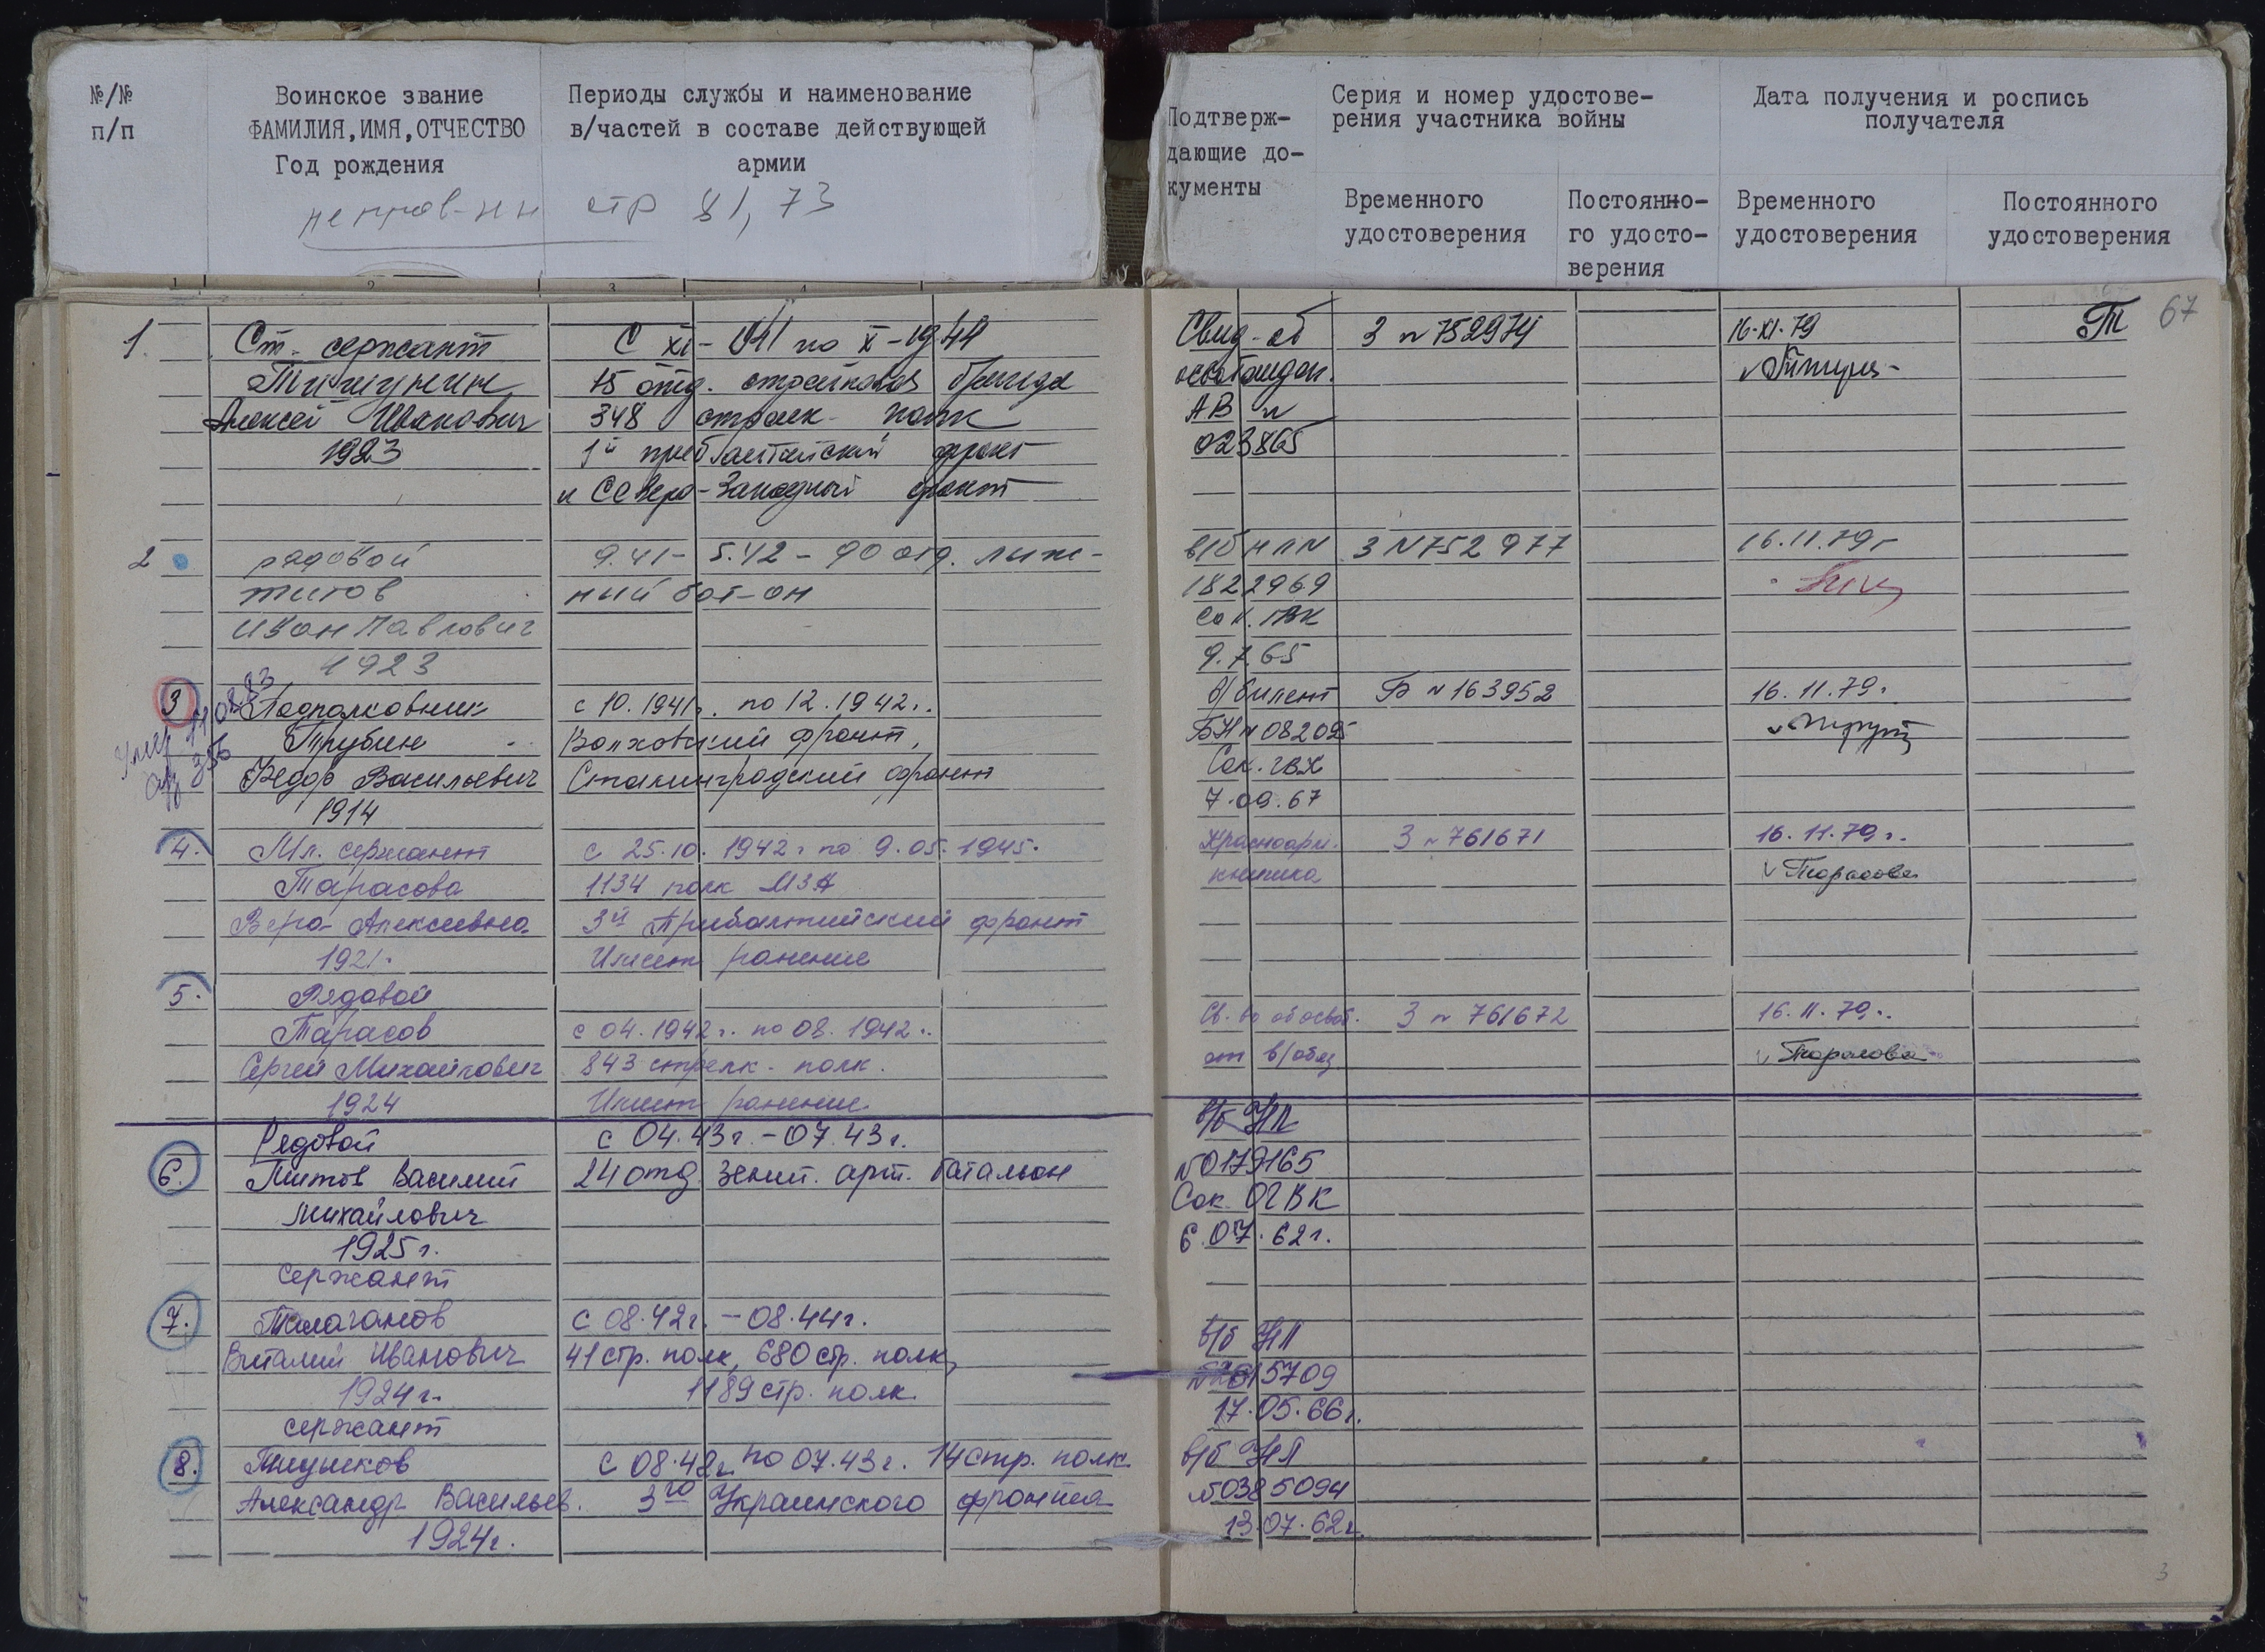 №/№
п/п
Воинское звание
ФАМИЛИЯ, ИМЯ, ОТЧЕСТВО
Год рождения
Периоды службы и наименование
в/частей в составе действующей
армии
стр 81, 73
Подтверж-
дающие до-
кументы
Серия и номер удостове-
рения участника войны
Временного
удостоверения
Постоянно-
го удосто-
верения
Дата получения и роспись
получателя
Временного
удостоверения
Постоянного
удостоверения
Т 67
1.
Ст. сержант
Алексей Иванович
1923
С XI-041 по X-1944
15 отд. стрелковая бригада
348 стрелк. полк
1й прибалтийский фронт
и Северо-Западный фронт
Свид-об
освобожден.
АВ №
023865
З № 752974
16.XI.79
2
рядовой
Титов
Иван Павлович
1923
9.41- 5.42 - 90 отд. лыж-
ный бат-он
в/б НЛ N
1822969
Сок. ГВК
9.7.65
З N 752977
16.11.79г
3
Умер 11.02.83
Подполковник
Трубин
Федор Васильевич
1914
с 10.1941г. по 12.1942г.
Волховский фронт,
Сталинградский фронт
в/билет
БН № 082095
Сок. ГВК
7.09.67
Б № 163952
16.11.79г.
4.
Мл. сержант
Тарасова
Вера Алексеевна
1921г.
с 25.10.1942г по 9.05.1945.
1134 полк МЗА
3й Прибалтийский фронт
Имеет ранение
Красноарм.
книжка
З № 761671
16.11.79г.
Тарасова
5.
Рядовой
Тарасов
Сергей Михайлович
1924
с 04.1942г. по 08.1942г.
843 стрелк. полк.
Имеет ранение
Св. во об освоб.
от в/обяз
З № 761672
16.11.79г.
Тарасова
6.
Рядовой
Титов Василий
Михайлович
1925г.
с 04.43г. - 07.43г.
24 отд зенит. арт. батальон
в/б НП
№ 0179165
Сок ОГВК
6.07.62г.
7.
Сержант
Талаганов
Виталий Иванович
1924г.
с 08.42г. - 08.44г.
41 стр. полк, 680 стр. полк,
1189 стр. полк.
в/б НП
17.05.66г.
8.
сержант
Александр Васильев.
1924г.
с 08.42г. по 07.43г. 14 стр. полк
3го Украинского фронта
в/б НП
№ 0385094
13.07.62г.
3